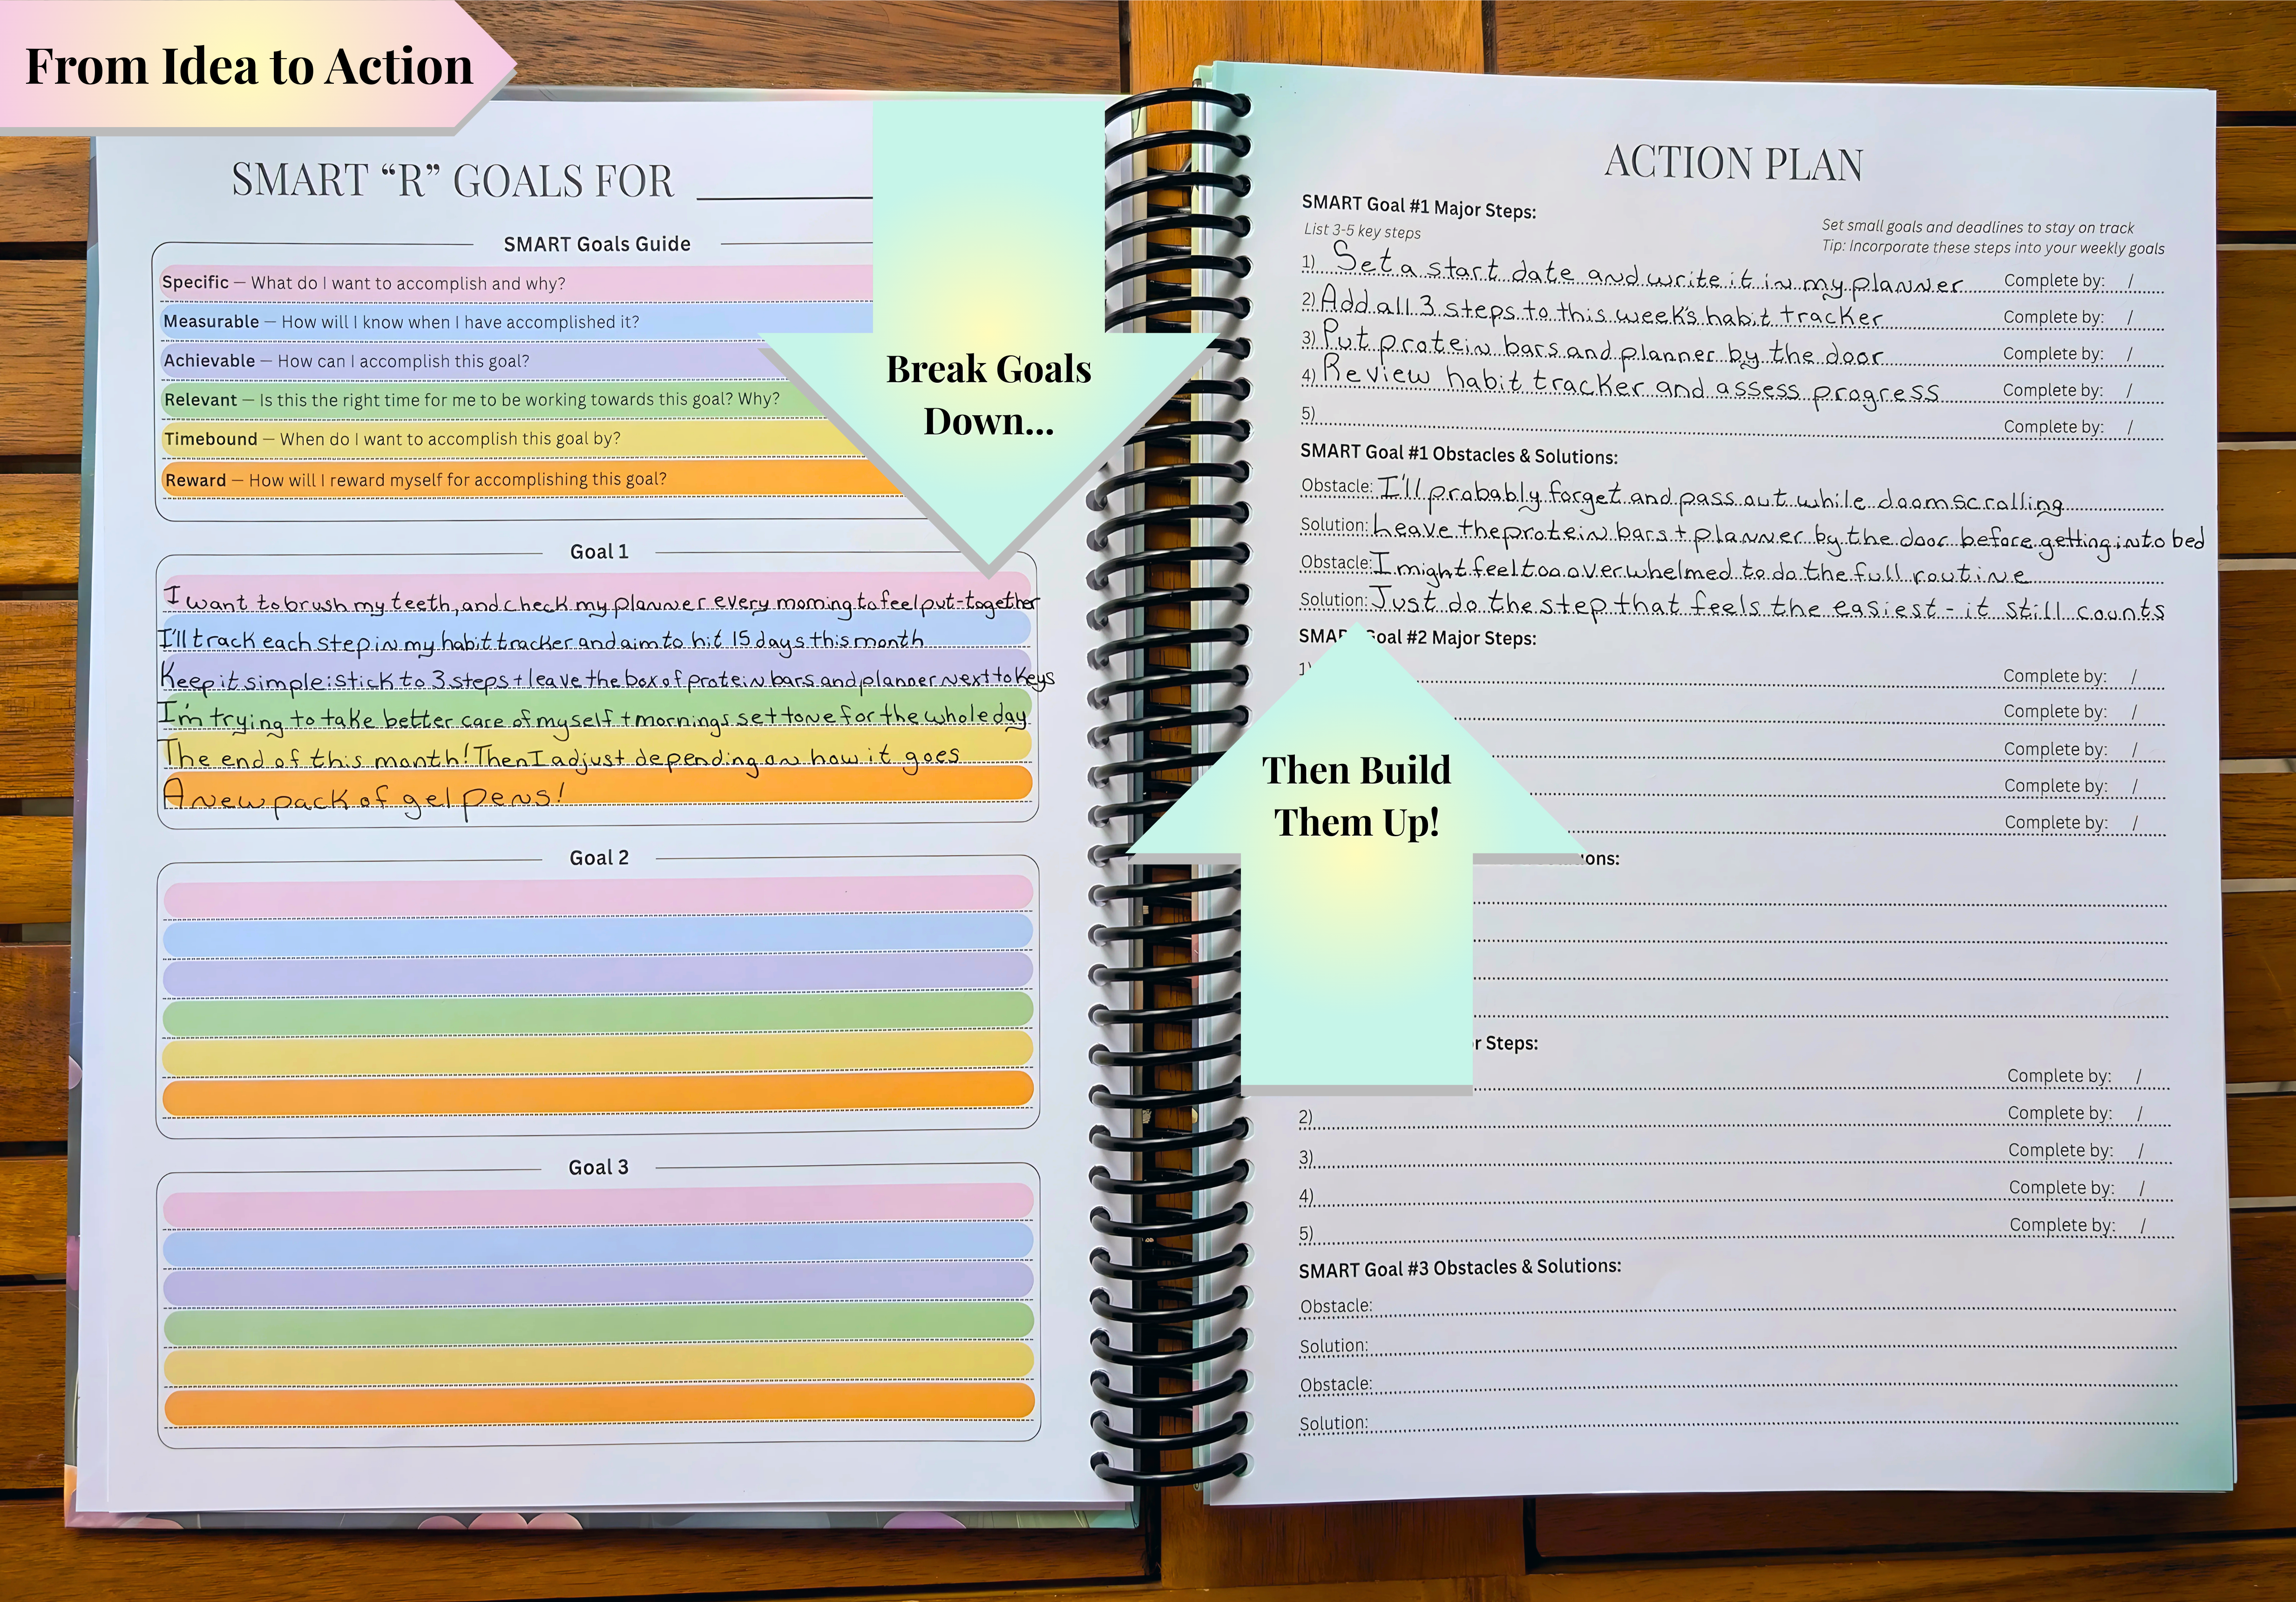 From Idea to Action
SMART “R” GOALS FOR
SMART Goals Guide
Specific — What do I want to accomplish and why?
Measurable — How will I know when I have accomplished it?
Achievable — How can I accomplish this goal?
Relevant — Is this the right time for me to be working towards this goal? Why?
Timebound — When do I want to accomplish this goal by?
Reward — How will I reward myself for accomplishing this goal?
Break Goals
Down...
Goal 1
I want to brush my teeth, and check my planner every morning to feel put-together
I'll track each step in my habit tracker and aim to hit 15 days this month
Keep it simple: stick to 3 steps + leave the box of protein bars and planner next to keys
I'm trying to take better care of myself + mornings set tone for the whole day
The end of this month! Then I adjust depending on how it goes
A new pack of gel pens!
Goal 2
Goal 3
ACTION PLAN
SMART Goal #1 Major Steps:
List 3-5 key steps
Set small goals and deadlines to stay on track
Tip: Incorporate these steps into your weekly goals
1) Set a start date and write it in my planner Complete by: /
2) Add all 3 steps to this week's habit tracker Complete by: /
3) Put protein bars and planner by the door Complete by: /
4) Review habit tracker and assess progress Complete by: /
5) Complete by: /
SMART Goal #1 Obstacles & Solutions:
Obstacle: I'll probably forget and pass out while doomscrolling
Solution: Leave the protein bars + planner by the door before getting into bed
Obstacle: I might feel too overwhelmed to do the full routine
Solution: Just do the step that feels the easiest - it still counts
SMART Goal #2 Major Steps:
1) Complete by: /
Complete by: /
Complete by: /
Complete by: /
Complete by: /
Then Build
Them Up!
Steps:
Complete by: /
2) Complete by: /
3) Complete by: /
4) Complete by: /
5) Complete by: /
SMART Goal #3 Obstacles & Solutions:
Obstacle:
Solution:
Obstacle:
Solution: